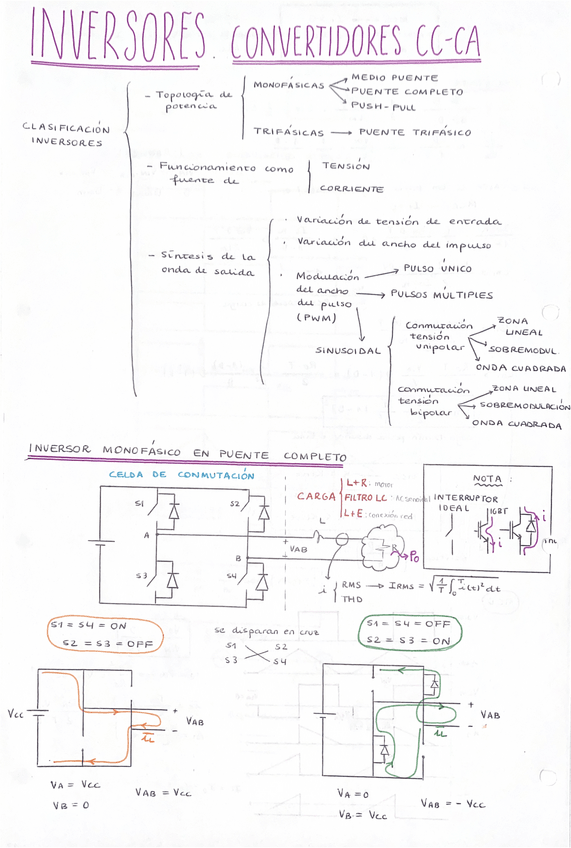 INVERSORES. CONVERTIDORES CC-CA
CLASIFICACIÓN
INVERSORES
- Topología de
potencia
MONOFÁSICAS
MEDIO PUENTE
PUENTE COMPLETO
PUSH-PULL
TRIFÁSICAS → PUENTE TRIFÁSICO
- Funcionamiento como
fuente de
TENSIÓN
CORRIENTE
- Síntesis de la
onda de salida
· Variación de tensión de entrada
· Variación du ancho del impulso
· Modulación
del ancho
del pulso
(PWM)
PULSO ÚNICO
PULSOS MÚLTIPLES
SINUSOIDAL
Conmutación
tensión
unipolar
ZONA
LINEAL
SOBREMODUL
ONDA CUADRADA
conmutación
tensión
bipolar
ZONA LINEAL
SOBREMODULACIÓN
ONDA CUADRADA
INVERSOR MONOFÁSICO EN PUENTE COMPLETO
CELDA DE CONMUTACIÓN
S1
S2
A
B
S3
S4
+
VAB
-
L
CARGA
L+R: motor
FILTRO LC:
L+E: conexión red
R
Po
i
RMS → IRMS = √(1/T ∫₀ᵀ i(t)² dt
THD
NOTA:
INTERRUPTOR
IDEAL
IGBT
i
i
S1 = S4 = ON
S2 = S3 = OFF
se disparan en cruz
S1 S2
S3 S4
S1 = S4 = OFF
S2 = S3 = ON
Vcc
+
VAB
-
iL
+
VAB
-
iL
VA = Vcc
VB = 0
VAB = Vcc
VA = 0
VB = Vcc
VAB = - Vcc